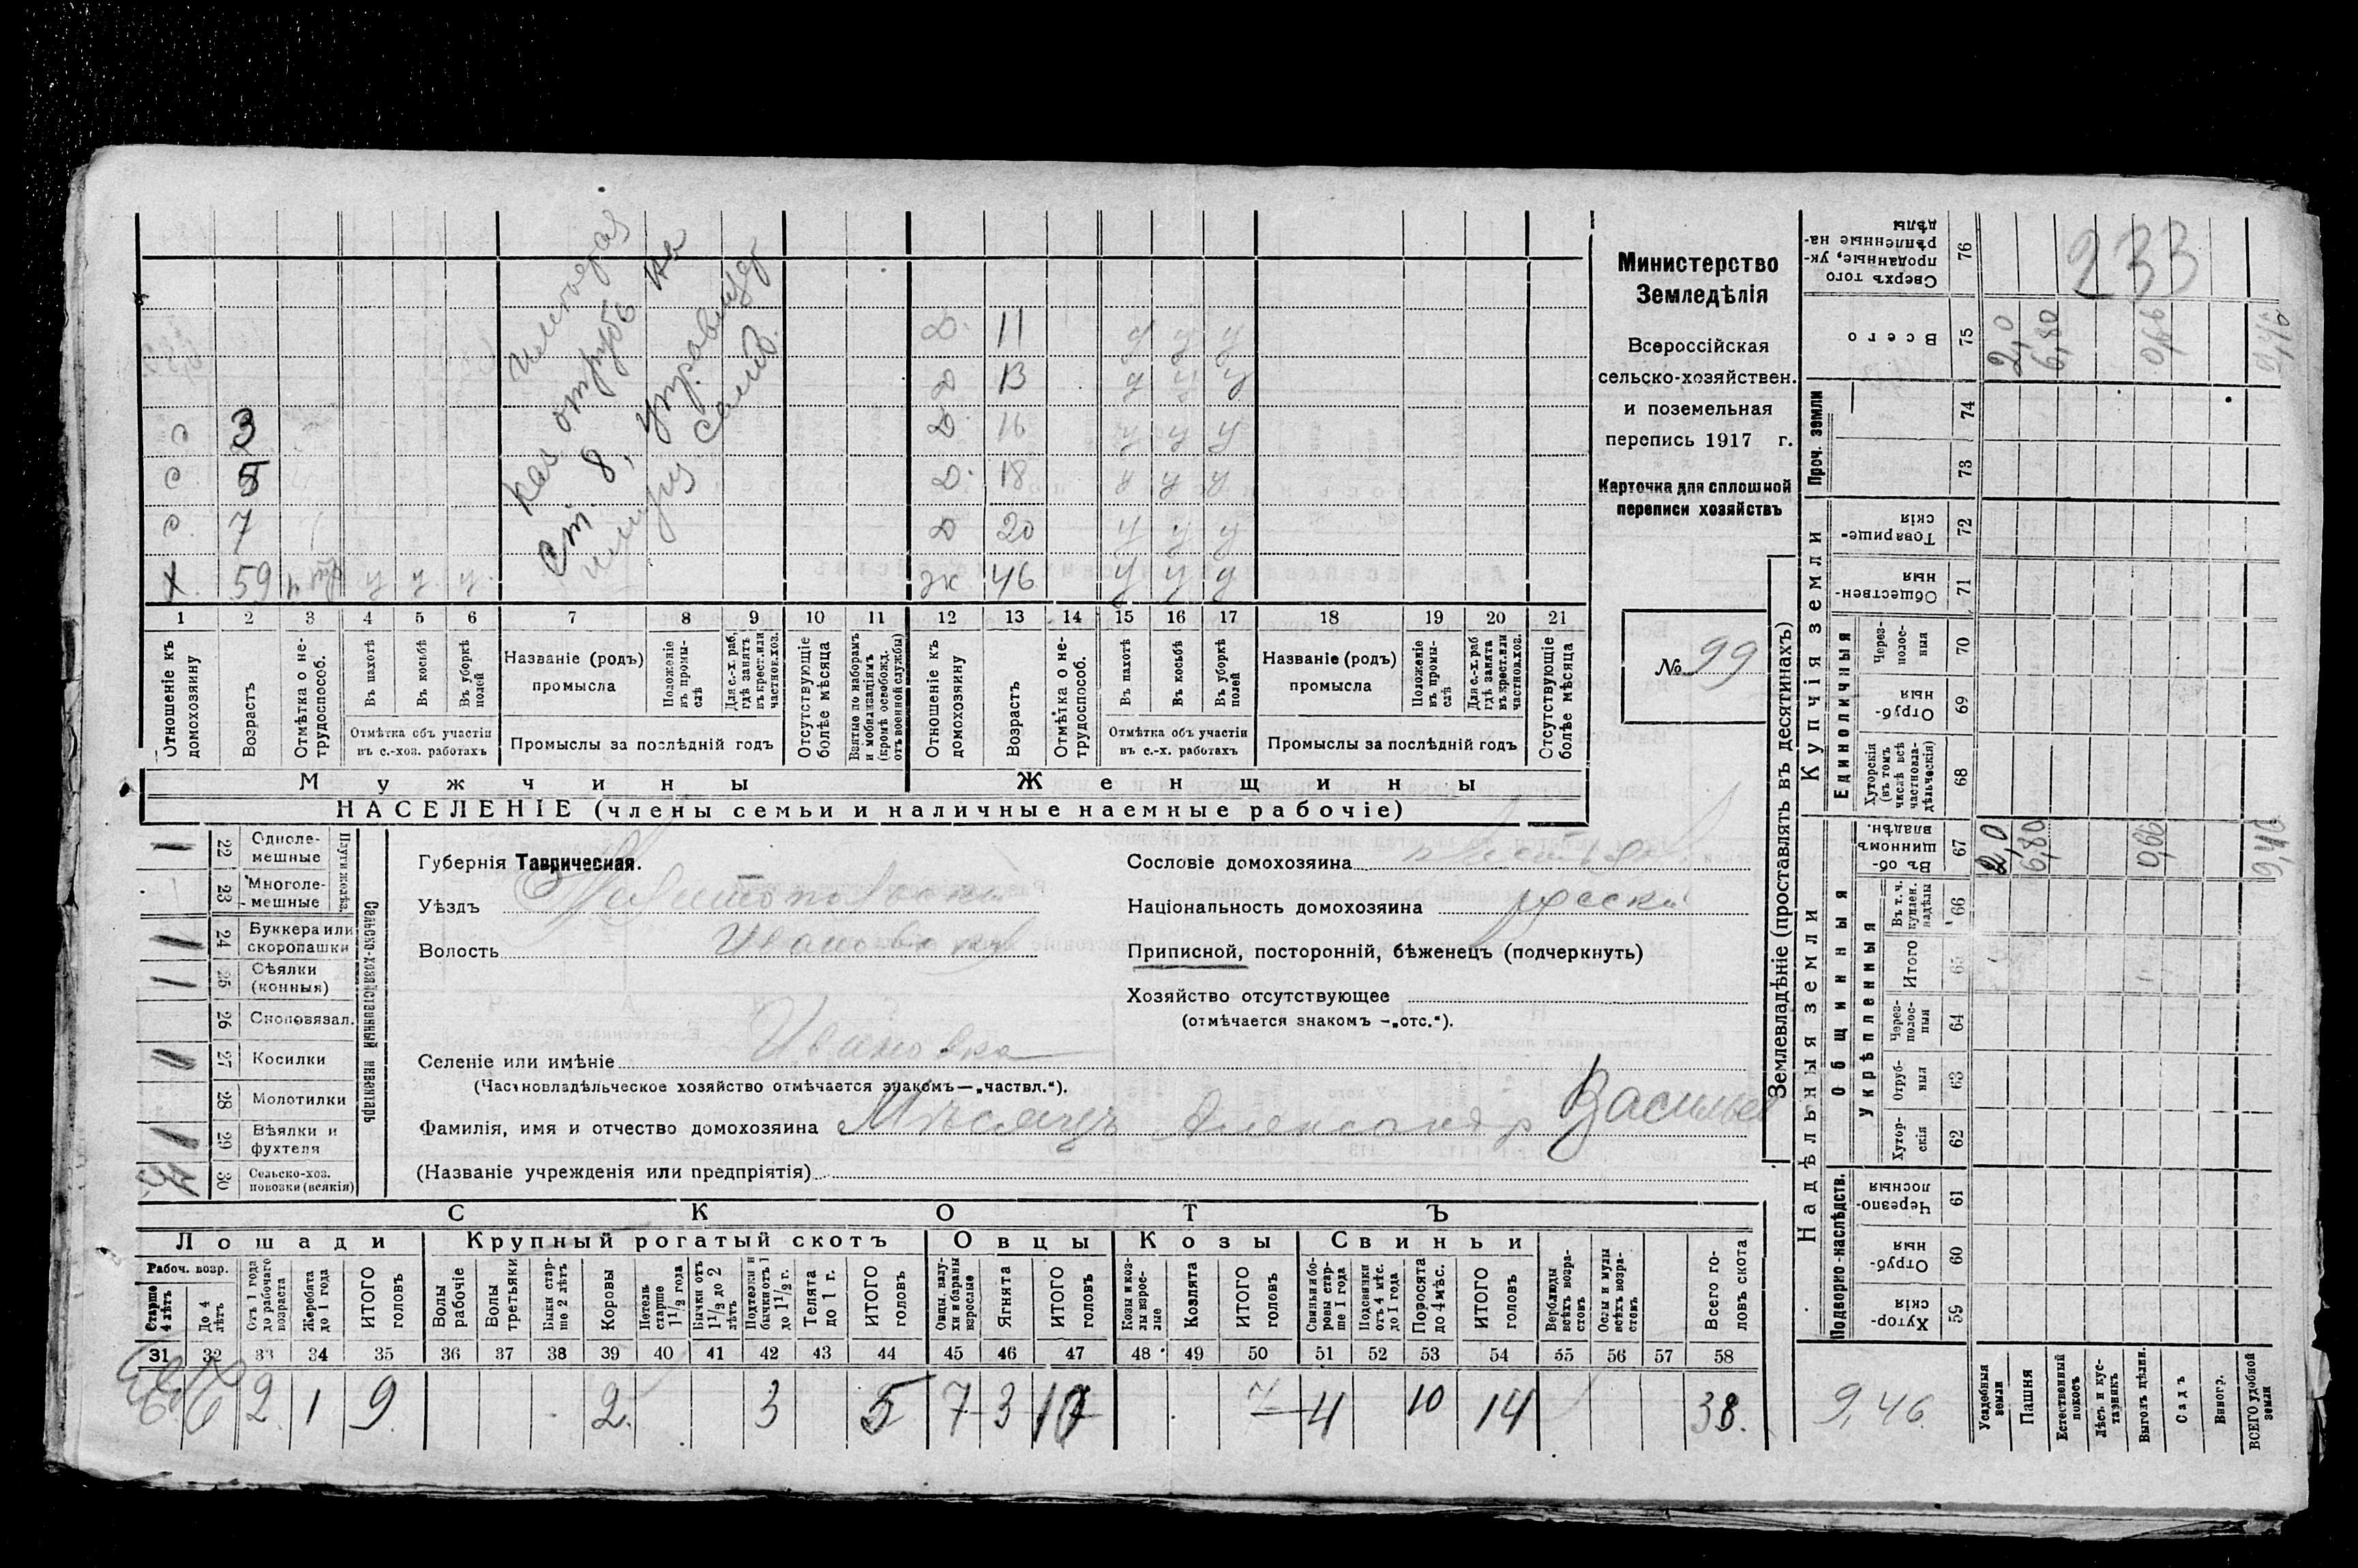 Министерство
Земледѣлія
Всероссійская
сельско-хозяйствен.
и поземельная
перепись 1917 г.
Карточка для сплошной
переписи хозяйствъ
№ 99
233
Д. 11
Д 13
с 3 Д 16
с 5 Д. 18
с. 7 Д 20
х. 59 у у у. ж 46 у у у
1 2 3 4 5 6 7 8 9 10 11 12 13 14 15 16 17 18 19 20 21
Отношеніе къ домохозяину
Возрастъ
Отмѣтка о не-трудоспособ.
Въ пахотѣ
Въ косьбѣ
Въ уборкѣ полей
Отмѣтка объ участіи въ с.-хоз. работахъ
Названіе (родъ) промысла
Положеніе въ промы-слѣ
Для с.-х. раб, гдѣ занятъ въ крест. или частнов. хоз.
Промыслы за послѣдній годъ
Отсутствующіе болѣе мѣсяца
Взятые по наборамъ и мобилизаціямъ (кромѣ освобожд. отъ военной службы)
Отношеніе къ домохозяину
Возрастъ
Отмѣтка о не-трудоспособ.
Въ пахотѣ
Въ косьбѣ
Въ уборкѣ полей
Отмѣтка объ участіи въ с.-х. работахъ
Названіе (родъ) промысла
Положеніе въ промы-слѣ
Для с.-х. раб гдѣ занята въ крест. или частнов. хоз.
Промыслы за послѣдній годъ
Отсутствующіе болѣе мѣсяца
Мужчины Женщины
НАСЕЛЕНІЕ (члены семьи и наличные наемные рабочіе)
Сельско-хозяйственный инвентарь
Плуги желѣз.
22 Одноле-мешные
23 Многоле-мешные
24 Буккера или скоропашки
25 Сѣялки (конныя)
26 Сноповязал.
27 Косилки
28 Молотилки
29 Вѣялки и фухтеля
30 Сельско-хоз. повозки (всякія)
Губернія Таврическая.
Уѣздъ Мелитопольскій
Волость Ивановка
Селеніе или имѣніе Ивановка
(Частновладѣльческое хозяйство отмѣчается знакомъ—„частвл.“).
Фамилія, имя и отчество домохозяина Мѣсяцъ Александр Васильев
(Названіе учрежденія или предпріятія)
Сословіе домохозяина
Національность домохозяина русскій
Приписной, посторонній, бѣженецъ (подчеркнуть)
Хозяйство отсутствующее
(отмѣчается знакомъ -„отс.“).
СКОТЪ
Лошади Крупный рогатый скотъ Овцы Козы Свиньи
Рабоч. возр.
Старше 4 лѣтъ
До 4 лѣтъ
Отъ 1 года до рабочаго возраста
Жеребята до 1 года
ИТОГО головъ
Волы рабочіе
Волы третьяки
Быки стар-ше 2 лѣтъ
Коровы
Нетели старше 1 1/2 года
Бычки отъ 1 1/2 до 2 лѣтъ
Подтелки и бычки отъ 1 до 1 1/2 г.
Телята до 1 г.
ИТОГО головъ
Овцы, валу-хи и бараны взрослые
Ягнята
ИТОГО головъ
Козы и коз-лы взрос-лые
Козлята
ИТОГО головъ
Свиньи и бо-ровы стар-ше 1 года
Подсвинки отъ 4 мѣс. до 1 года
Поросята до 4 мѣс.
ИТОГО головъ
Верблюды всѣхъ возра-стовъ
Ослы и мулы всѣхъ возра-стовъ
Всего го-ловъ скота
31 32 33 34 35 36 37 38 39 40 41 42 43 44 45 46 47 48 49 50 51 52 53 54 55 56 57 58
6 2. 1 9 2. 3 5 7 3 10 4 10 14 38.
Землевладѣніе (проставлять въ десятинахъ)
Надѣльныя земли Купчія земли Проч. земли
Подворно-наслѣдств. Общинныя Единоличныя
Укрѣпленныя
59 Хутор-скія
60 Отруб-ныя
61 Черезпо-лосныя
62 Хутор-скія
63 Отруб-ныя
64 Через-полос-ныя
65 Итого
66 Въ т. ч. куплен. надѣлы
67 Въ об-щинномъ владѣн.
68 Хуторскія (въ томъ числѣ всѣ частновла-дѣльческія)
69 Отруб-ныя
70 Через-полос-ныя
71 Обществен-ныя
72 Товарище-скія
73
74
75 Всего
76 Сверхъ того проданные, ук-рѣпленные на-дѣлы
Усадебныя земли
Пашня
Естественный покосъ
Лѣсъ и кус-тарникъ
Выгонъ цѣлин.
Садъ
Виногр.
ВСЕГО удобной земли
2,0 6,80 0,66 9,46
2,0 6,80 0,66 9,46
9,46